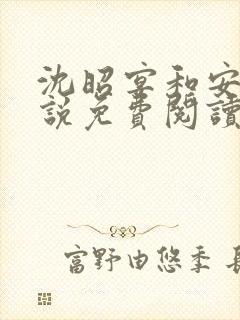 沈昭宴和安
說免費閱讀
富野由悠季 長